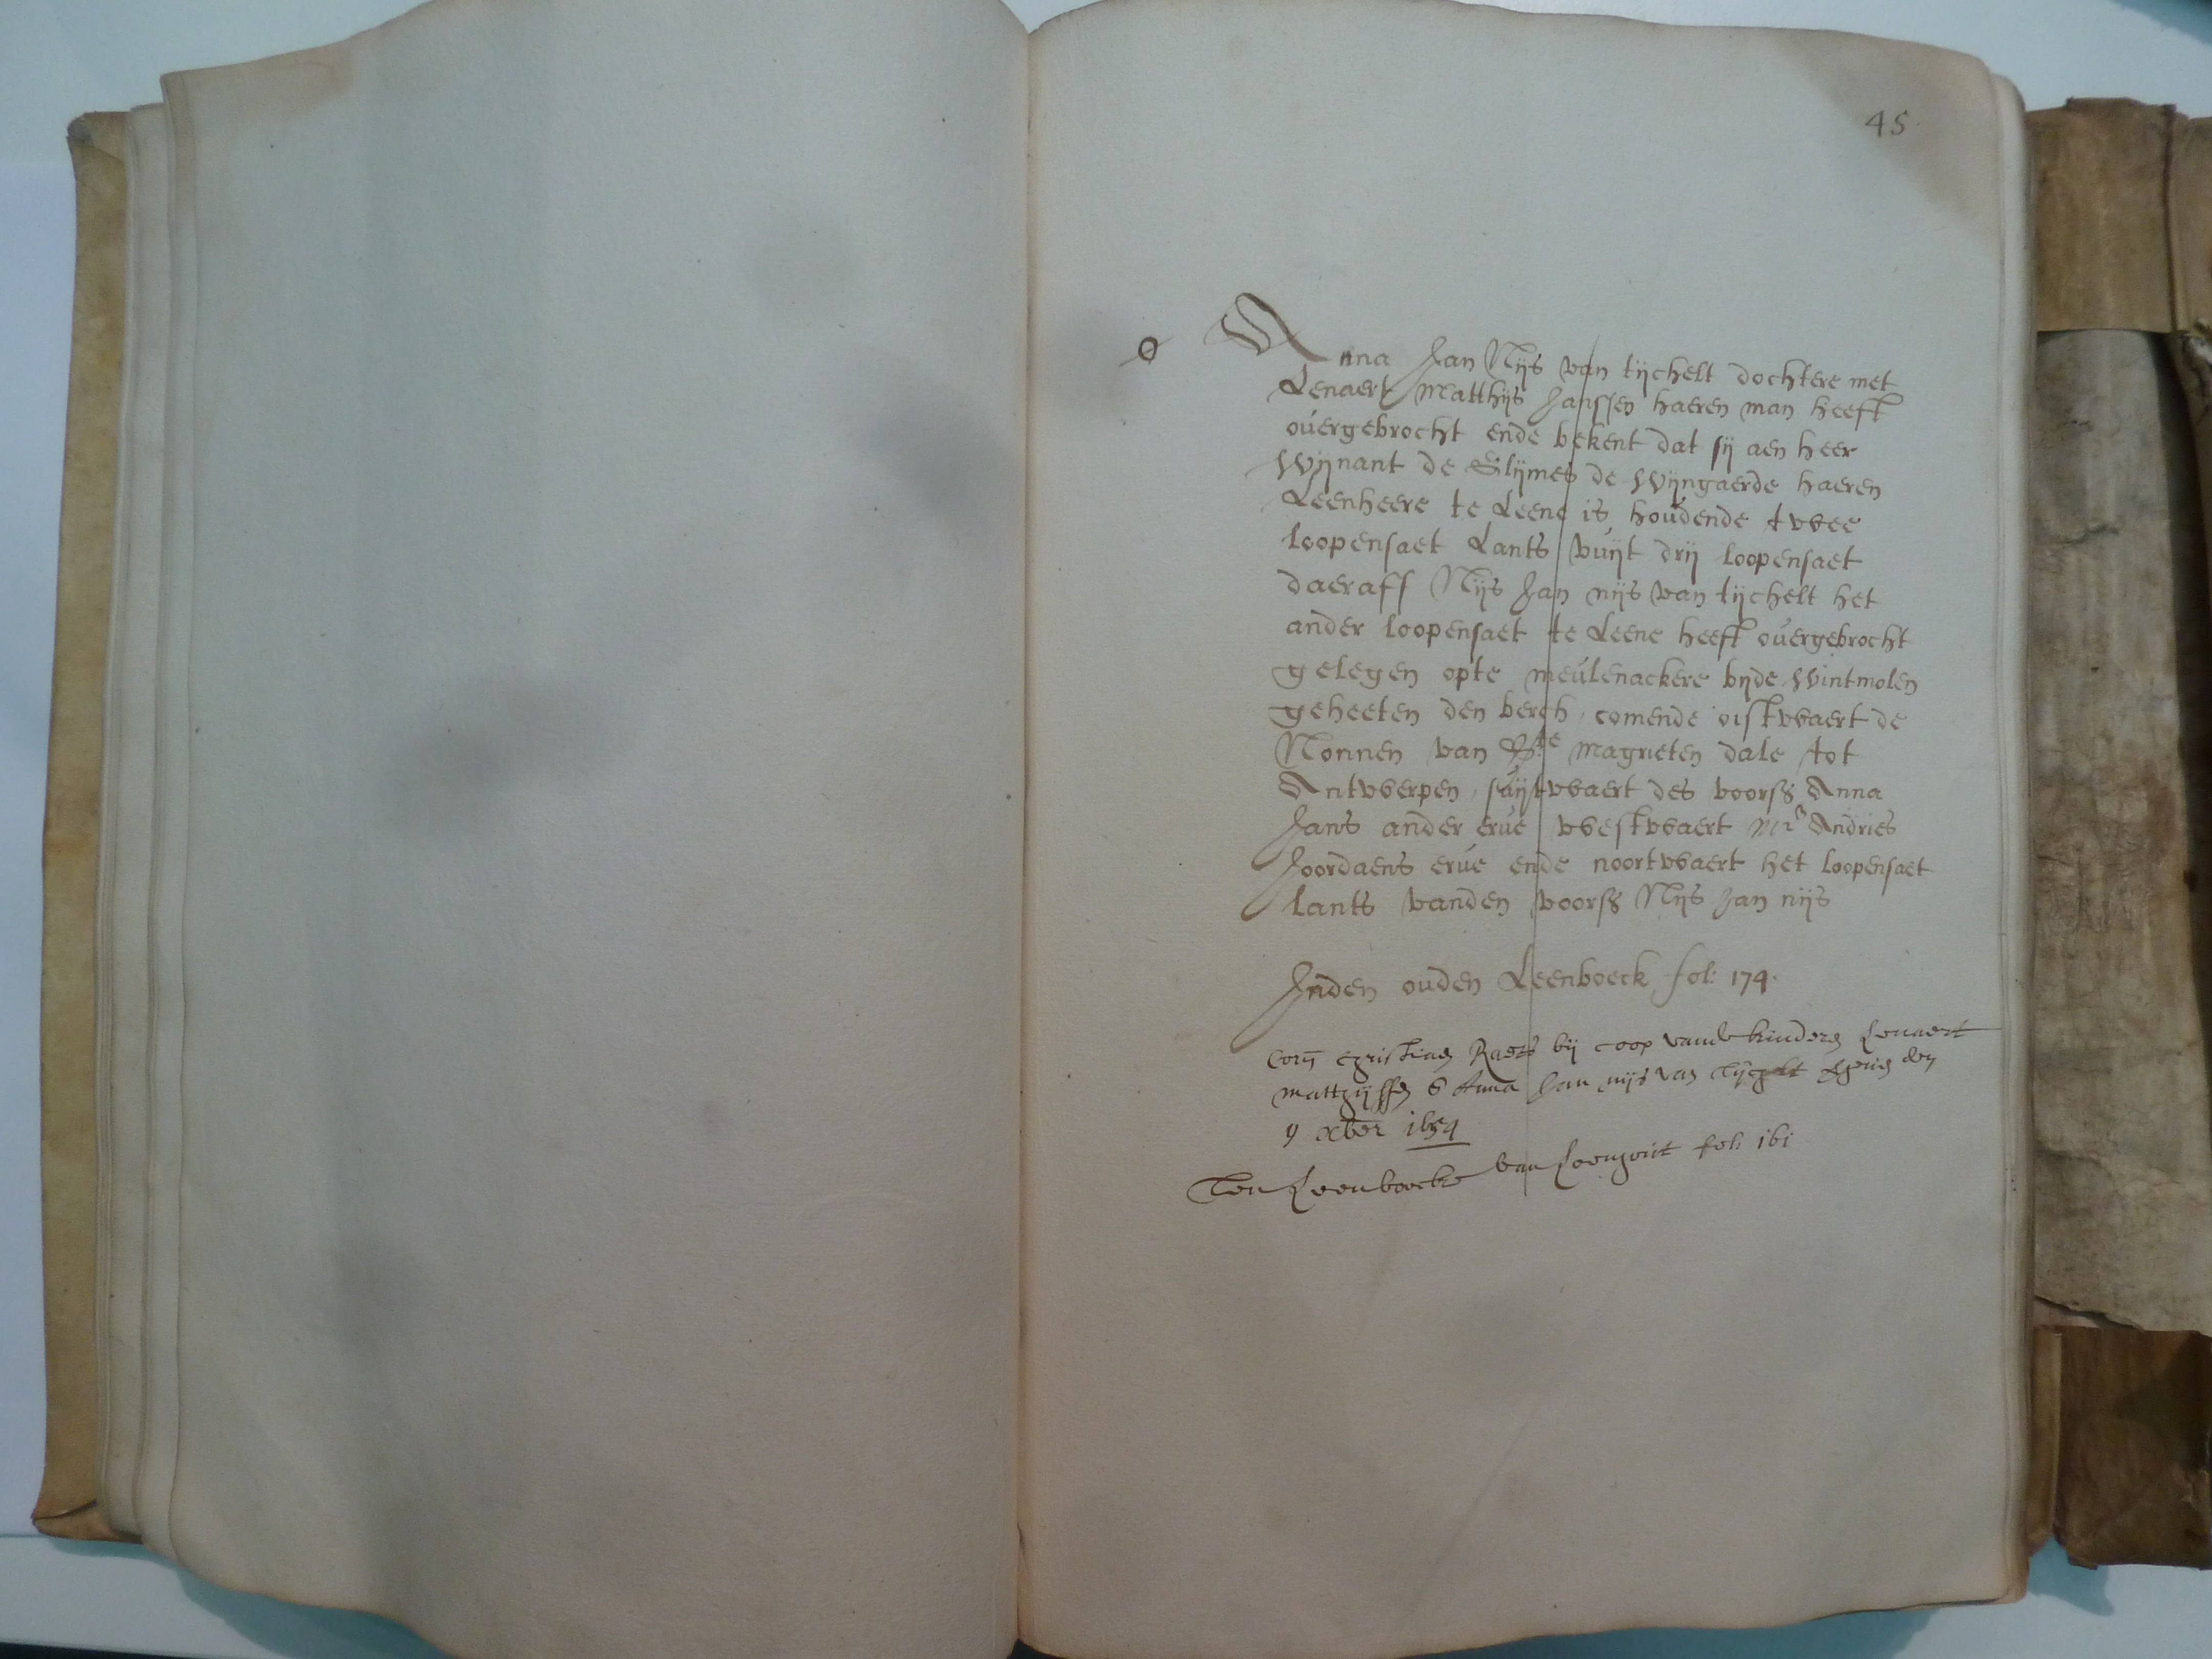 45
Anna Jan Nijs van tijchelt dochtere met
Lenaert Matthijs Janssen haeren man heeft
overgebrocht ende bekent dat sij aen heer
Wijnant de Glijmes de Wijngaerde haeren
Leenheere te Leene is houdende twee
loopensaet Lants vuijt drij loopensaet
daeraff Nijs Jan nijs van tijchelt het
ander loopensaet te Leene heeft overgebrocht
gelegen opte meulenackere bijde Wintmolen
geheeten den berch, comende oistwaert de
Nonnen van Ste magrieten dale tot
Antwerpen, suijtwaert des voorss Anna
Jans ander erve westwaert Mr Andries
Joordaens erve ende noortwaert het loopensaet
lants vanden voorss Nijs Jan nijs
Inden ouden Leenboeck fol: 174.
Corn Christiaen Raets bij coop vande kinderen Lenaert
matthijssen & Anna Jan nijs van Tijchelt den
9 xber 1654
Ten Leenboecke van fol: 161